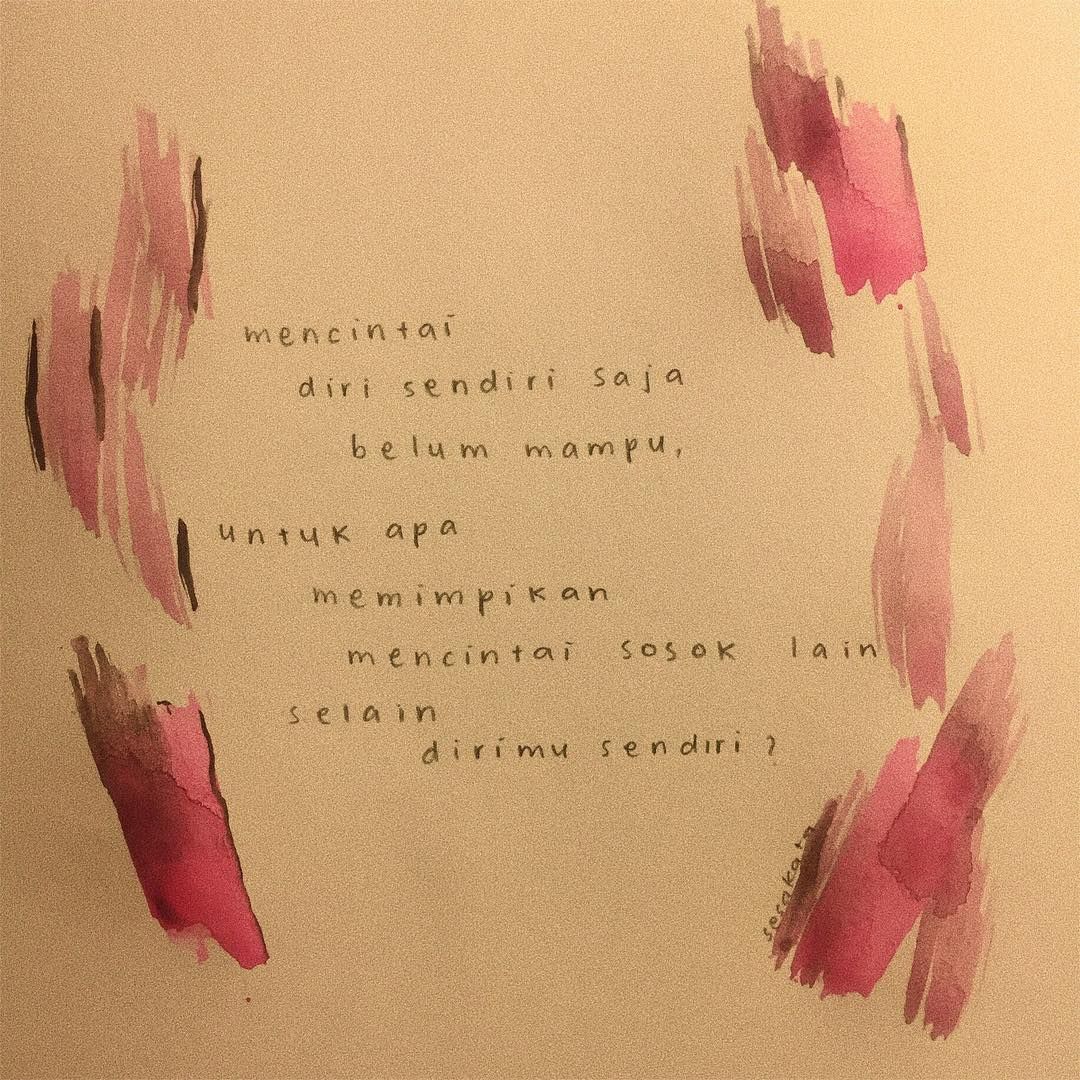 mencintai
diri sendiri saja
belum mampu,
untuk apa
memimpikan
mencintai sosok lain
selain
dirimu sendiri ?
sesakata